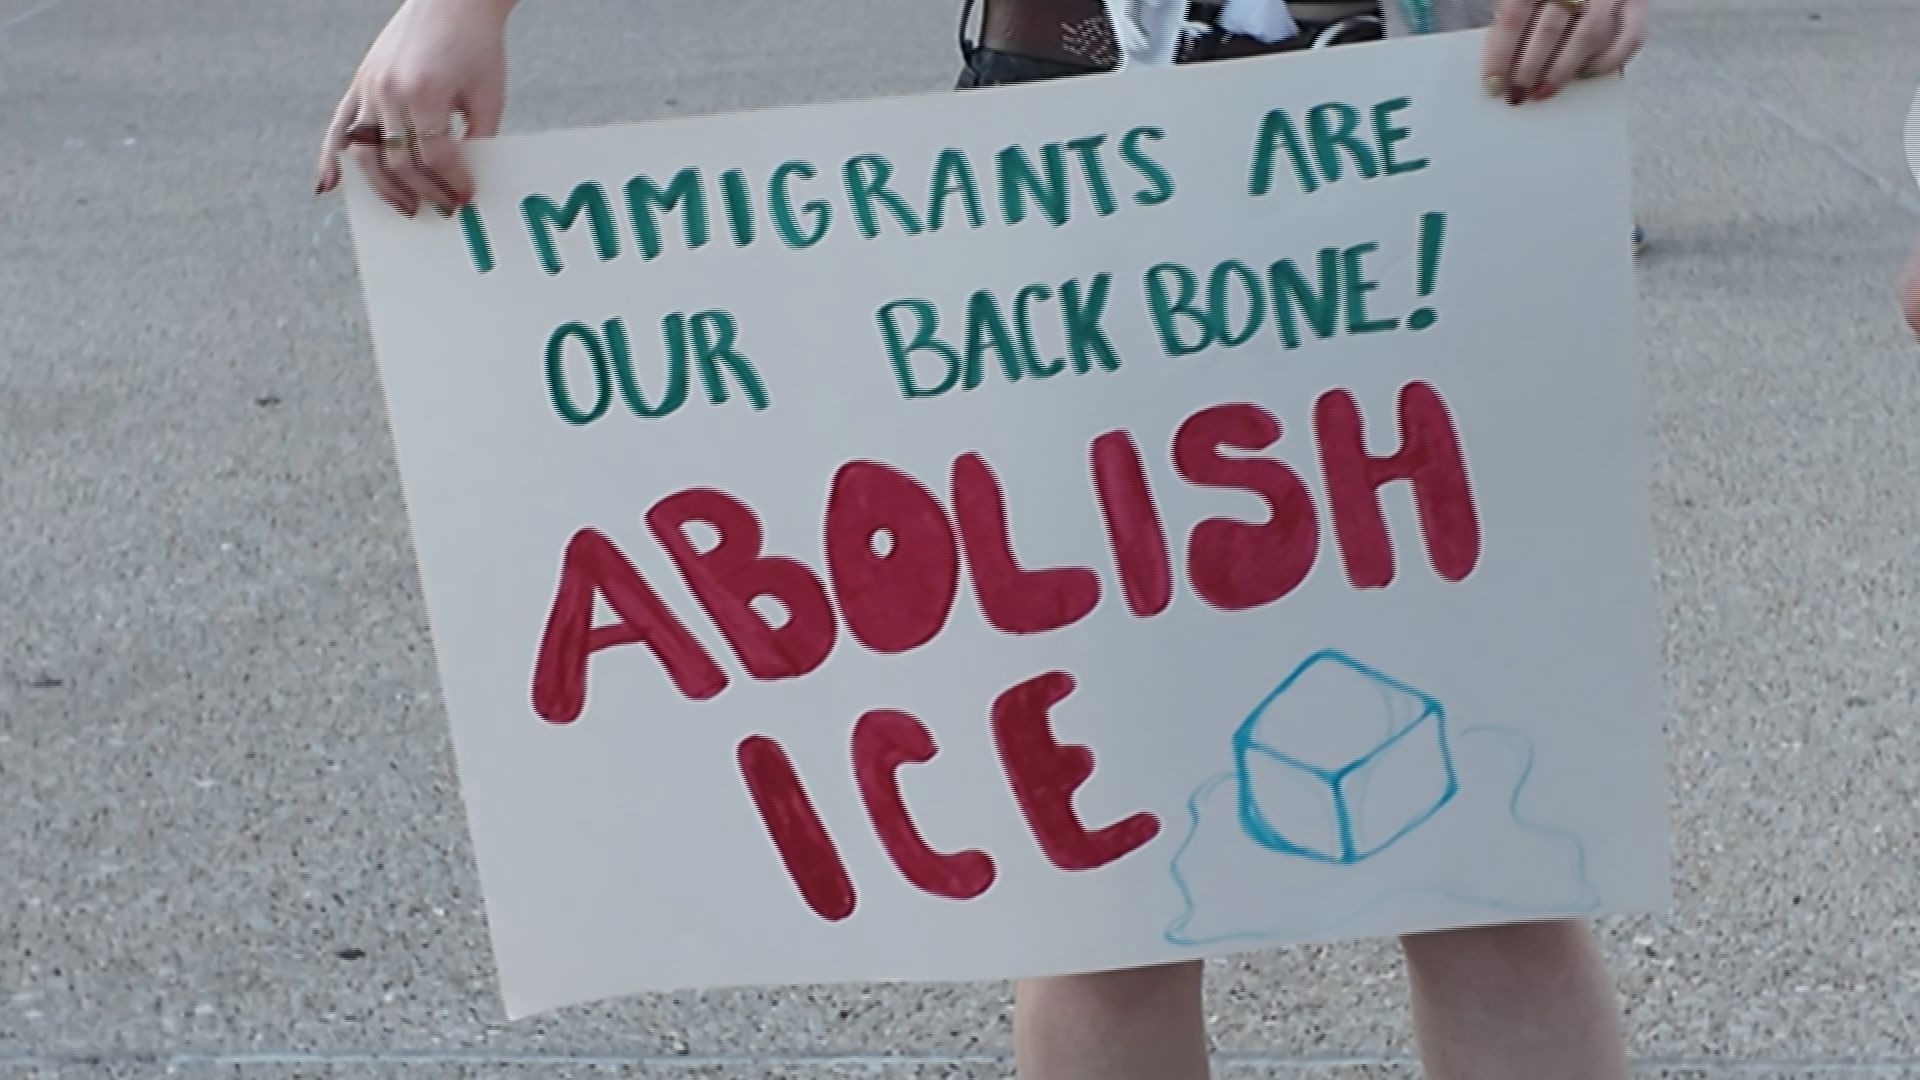 IMMIGRANTS ARE
OUR BACKBONE!
ABOLISH
ICE